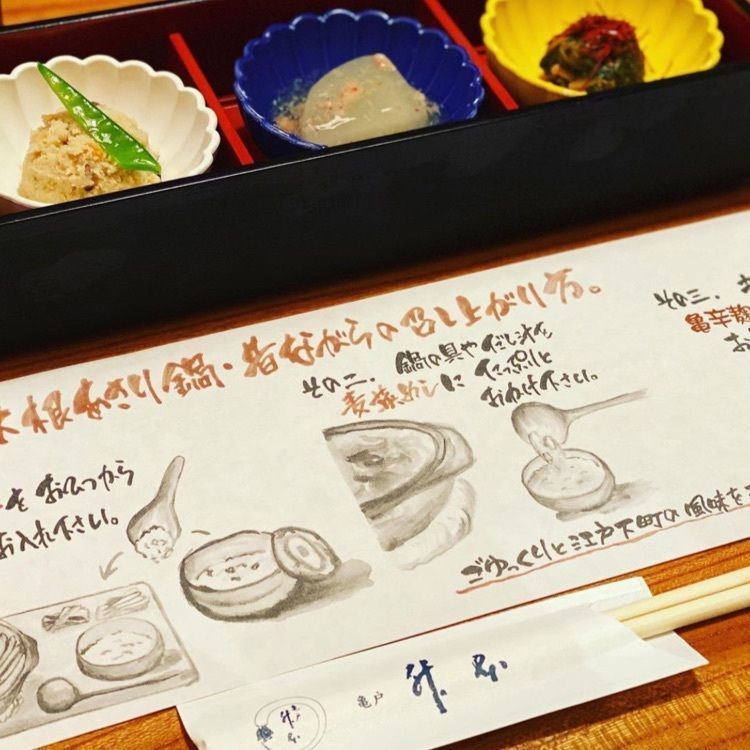 大根あさり鍋・昔ながらの召し上がり方。
をおひつから
お入れ下さい。
その二.鍋の具やだし汁を
麦菜めしにたっぷりと
おかけ下さい。
その三.
亀辛麹
お
ごゆっくりと江戸下町の風味を
亀戸 升本
升本